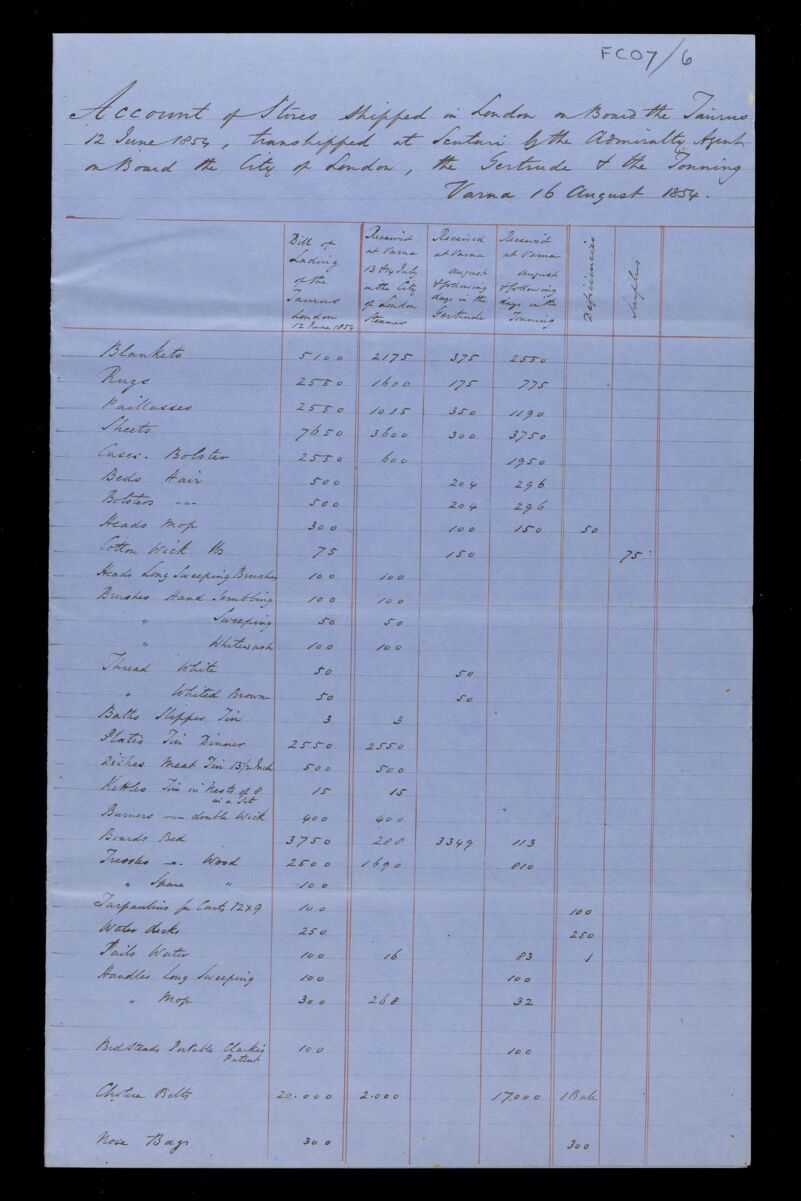 FC07/6
Account of Stores shipped in London on Board the Taurus
12 June 1854, transhipped at Scutari by the Admiralty Agent
on Board the City of London, the Gertrude & the Tonning
Varna 16 August 1854.
Bill of Lading of the Taurus London 12 June 1854
Received at Varna 13 & 14 July in the City of London Steamer
Received at Varna August & following days in the Gertrude
Received at Varna August & following days in the Tonning
Deficiencies
Surplus
Blankets 5100 2175 375 2550
Rugs 2550 1600 175 775
Paillasses 2550 1015 350 1190
Sheets 7650 3600 300 3750
Cases. Bolster 2550 600 1950
Beds Hair 500 204 296
Bolsters -"- 500 204 296
Heads Mop 300 100 150 50
Cotton Wick lbs 75 150 75
Heads Long Sweeping Brushes 100 100
Brushes Hand Scrubbing 100 100
" Sweeping 50 50
" Whitewash 100 100
Thread White 50 50
" Whited Brown 50 50
Baths Slipper Tin 3 3
Plates Tin Dinner 2550 2550
Dishes Meat Tin 13½ Inch 500 500
Kettles Tin in Nests of 8 15 15
in a Set
Burners -"- double Wick 400 400
Boards Bed 3750 288 3349 113
Tressles -"- Wood 2500 1690 810
" Spare " 100
Tarpaulins for Carts 12x9 100 100
Water decks 250 250
Pails Water 100 16 83 1
Handles Long Sweeping 100 100
" Mop 300 268 32
Bedsteads Portable Clarke's 100 100
Patent
Cholera Belts 20.000 2.000 17.000 1 Bale
Nose Bags 300 300